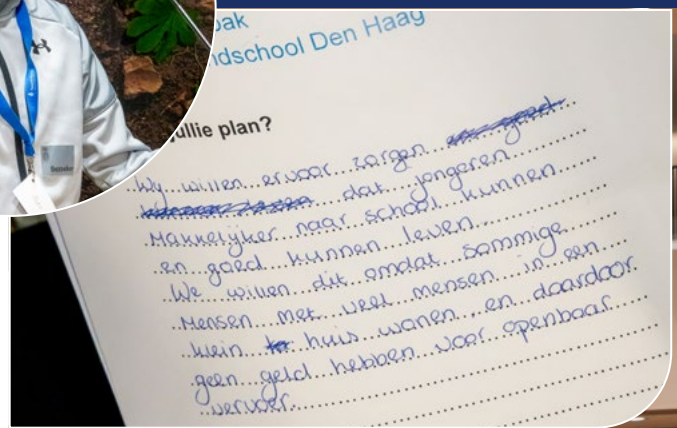 bak
ndschool Den Haag
ullie plan?
Wij willen ervoor zorgen
dat jongeren
Makkelijker naar school kunnen
en goed kunnen leven.
We willen dit omdat sommige
Mensen met veel mensen in een
klein huis wonen en daardoor
geen geld hebben voor openbaar
vervoer.